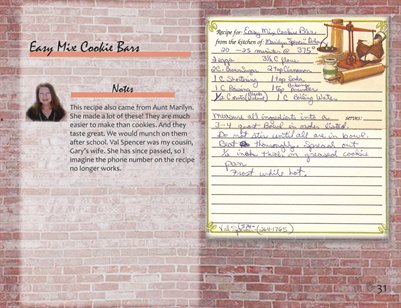 Easy Mix Cookie Bars
Notes
This recipe also came from Aunt Marilyn.
She made a lot of these! They are much
easier to make than cookies. And they
taste great. We would munch on them
after school. Val Spencer was my cousin,
Gary's wife. She has since passed, so I
imagine the phone number on the recipe
no longer works.
Recipe for: Easy Mix Cookie Bars
from the kitchen of: Marilyn
20 - 25 minutes @ 375°
2 eggs 3½ C flour
2C. Brown Sugar 2 tsp Cinnamon
1 C Shortening 1 tsp Soda
1 C Raisins 1 tsp Baking Powder
1 C Boiling Water
Measure all ingredients into a serves:
3-4 quart Bowl in order listed.
Do not stir until all are in bowl.
Beat thoroughly. Spread out
½ inch thick in greased cookie
pan
Frost while hot.
Val Spencer (264-1765)
31